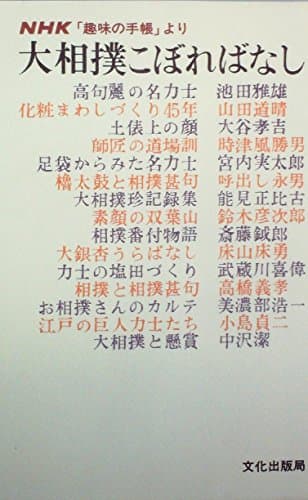 NHK「趣味の手帳」より
大相撲こぼればなし
高句麗の名力士 池田雅雄
化粧まわしづくり45年 山田道晴
土俵上の顔 大谷孝吉
師匠の道場訓 時津風勝男
足袋からみた名力士 宮内実太郎
櫓太鼓と相撲甚句 呼出し永男
大相撲珍記録集 能見正比古
素顔の双葉山 鈴木彦次郎
相撲番付物語 斎藤鉞郎
大銀杏うらばなし 床山床勇
力士の塩田づくり 武蔵川喜偉
相撲と相撲甚句 高橋義孝
お相撲さんのカルテ 美濃部浩一
江戸の巨人力士たち 小島貞二
大相撲と懸賞 中沢潔
文化出版局